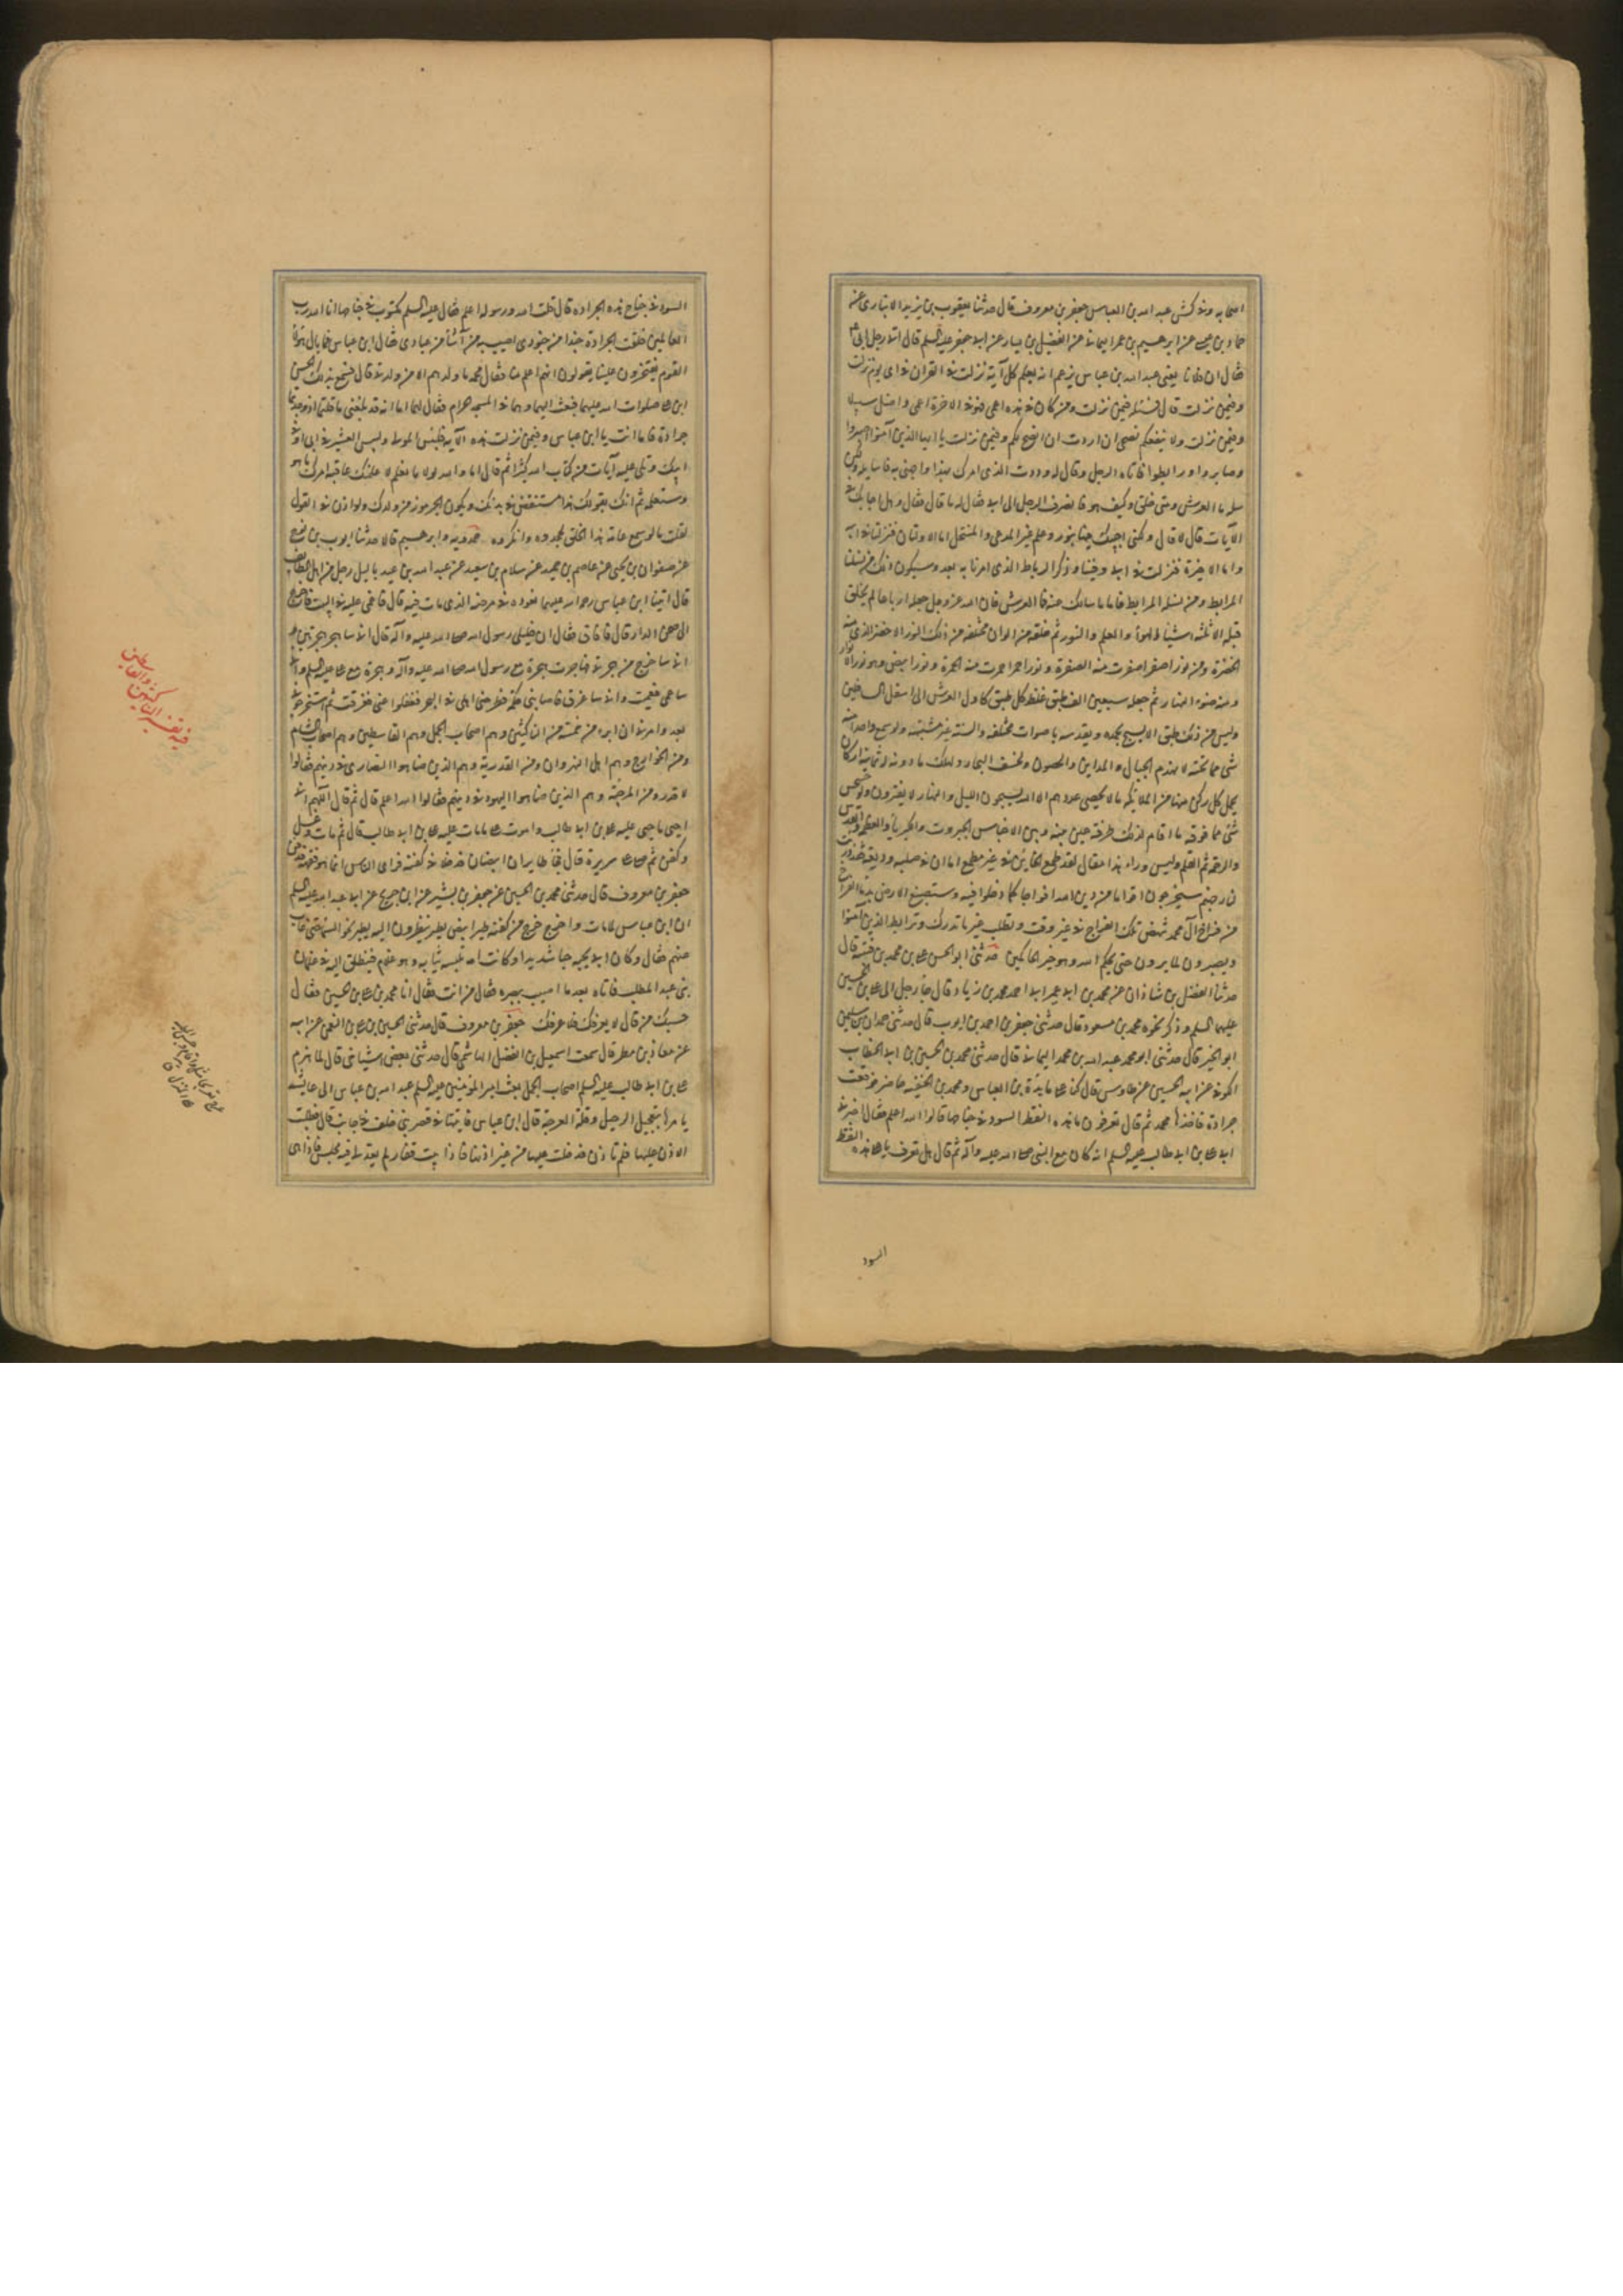 اصحابه وندكشى عبد الله بن العباس جعفر بن معروف قال حدثنا يعقوب بن يزيد الانبارى عن
حماد بن عيسى عن ابرهيم بن عمر اليمانى عن الفضيل بن يسار عن ابى جعفر عليه السلم قال اتى رجل ابى ع
فقال ان فلانا يعنى عبد الله بن عباس يزعم انه يعلم كل آية نزلت فى القران فى اى يوم نزلت
وفيمن نزلت قال فسئله فيمن نزلت ومن كان فى هذه اعمى فهو فى الاخرة اعمى واضل سبيلا
وفيمن نزلت ولا ينفعكم نصحى ان اردت ان انصح لكم وفيمن نزلت يا ايها الذين آمنوا اصبروا
وصابروا ورابطوا فاتاه الرجل وقال له وددت الذى امرك بهذا واجهنى به فاسايله ولكن
سله ما العرش ومتى خلق وكيف هو فانصرف الرجل الى ابى فقال له ما قال فقال وهل اجابك فى
الآيات قال لا قال ولكنى اجيبك فيها بنور وعلم غير المدعى والمنتحل اما الاوليان فنزلتا فى ابيه
واما الاخيرة فنزلت فى ابى وفينا وذكر الرباط الذى امرنا به بعد وسيكون ذلك من نسلنا
المرابط ومن نسله المرابط فاما ما سالك عنه فما العرش فان الله عز وجل جعله ارباعا لم يخلق
قبله الا ثلثة اشياء الهواء والقلم والنور ثم خلقه من الوان مختلفة من ذلك النور الاخضر الذى منه
الخضرة ومن نور اصفر اصفرت منه الصفرة ونور احمر احمرت منه الحمرة ونور ابيض وهو نور الانوار
ومنه ضوء النهار ثم جعله سبعين الف طبق غلظ كل طبق كاول العرش الى اسفل السافلين
وليس من ذلك طبق الا يسبح بحمده ويقدسه باصوات مختلفة والسنة غير مشتبهة ولو سمع واحدا منه
شى مما تحته لانهدم الجبال والمداين والحصون ولخسف البحار ولهلك ما دونه له ثمانية اركان
يحمل كل ركن منها من الملايكة ما لا يحصى عددهم الا الله يسبحون الليل والنهار لا يفترون ولو احس
شئ مما فوقه ما اقام لذلك طرفة عين بينه وبين الاحساس الجبروت والكبرياء والعظمة والقدس
والرحمة ثم القلم وليس وراء هذا مقال لقد طمع الخاين فى غير مطمع اما ان فى صلبه وديعة قد ذريت
لنار جهنم سيخرجون اقواما من دين الله افواجا كما دخلوا فيه وستصبغ الارض بدماء الفراخ
من فراخ آل محمد تنهض تلك الفراخ فى غير وقت وتطلب غير ما تدرك وترابط الذين آمنوا
ويصبرون لما يرون حتى يحكم الله وهو خير الحاكمين حدثنى ابو الحسن على بن محمد بن قتيبه قال
حدثنا الفضل بن شاذان عن محمد بن ابى عمير ابى احمد محمد بن زياد قال جاء رجل الى على بن الحسين
عليهما السلم وذكر نحوه محمد بن مسعود قال حدثنى جعفر بن احمد بن ايوب قال حدثنى حمدان بن سليمن
ابو الخير قال حدثنى ابو محمد عبد الله بن محمد اليمانى قال حدثنى محمد بن الحسين بن ابى الخطاب
الكوفى عن ابيه الحسين عن طاوس قال كنا على مايدة بن العباس ومحمد بن الحنفيه حاضر فوقعت
جرادة فاخذها محمد ثم قال تعرفون ما هذه النقط السود فى جناحها قالوا الله اعلم فقال اخبرنى
ابى على بن ابى طالب عليه السلم انه كان مع النبى صلى الله عليه وآله ثم قال هل تعرف يا على هذه النقط
السود
السود فى جناح هذه الجراده قال قلت الله ورسوله اعلم فقال عليه السلم مكتوب فى جناحها انا الله رب
العالمين خلقت الجرادة جندا من جنودى اصيب به من اشاء من عبادى فقال ابن عباس فما بال هؤلاء
القوم يفتخرون علينا يقولون انهم اعلم منا فقال محمد ما ولدهم الا من ولدنى قال فسمع ذلك الحسن
ابن على صلوات الله عليهما فبعث اليهما وهما فى المسجد الحرام فقال لهما اما انه قد بلغنى ما قلتما اذ وجدتما
جرادة فاما انت يا ابن عباس وفيمن نزلت هذه الآية فلبئس المولى ولبئس العشير فى ابى او فى
ابيك وتلى عليه آيات من كتاب الله كثيرا ثم قال اما والله لولا ما نعلم لاعلمتك عاقبة امرك ما هو
وستعلمه ثم انك بقولك هذا مستنقص فى بدنك ويكون الجرموز من ولدك ولو اذن فى القول
لقلت ما لو سمع عامة هذا الخلق لجحدوه وانكروه حمدويه وابرهيم قالا حدثنا ايوب بن نوح
عن صفوان بن يحيى عن عاصم بن حميد عن سلام بن سعيد عن عبد الله بن عبد ياليل رجل من اهل الطايف
قال اتينا ابن عباس رحمة الله عليهما نعوده فى مرضه الذى مات فيه قال فاغمى عليه فى البيت فاخرج
الى صحن الدار قال فافاق فقال ان خليلى رسول الله صلى الله عليه وآله قال انى ساهجر هجرتين و
انى ساخرج من هجرتى فهاجرت هجرة مع رسول الله صلى الله عليه وآله وهجرة مع على عليه السلم وانى
ساعمى فعميت وانى ساغرق فاصابنى حكة فطرحنى اهلى فى البحر فغفلوا عنى فغرقت ثم استخرجونى
بعد وامرنى ان ابرء من خمسة من الناكثين وهم اصحاب الجمل ومن القاسطين وهم اصحاب الشام
ومن الخوارج وهم اهل النهروان ومن القدرية وهم الذين ضاهوا النصارى فى دينهم فقالوا
لا قدر ومن المرجئة وهم الذين ضاهوا اليهود فى دينهم فقالوا الله اعلم قال ثم قال اللهم انى
احيى ما حيى عليه على بن ابى طالب واموت على ما مات عليه على بن ابى طالب قال ثم مات وغسل
وكفن ثم صلى على سريره قال فجاء طايران ابيضان فدخلا فى كفنه فراى الناس انما هو فقهه فدفن
جعفر بن معروف قال حدثنى محمد بن الحسين عن جعفر بن بشير عن ابن جريج عن ابى عبد الله عليه السلم
ان ابن عباس لما مات واخرج خرج من كفنه طير ابيض يطير ينظرون اليه يطير نحو السماء حتى غاب
عنهم فقال وكان ابى يحبه حبا شديدا وكانت امه تلبسه ثيابه وهو غلام فينطلق اليه فى غلمان
بنى عبد المطلب فاتاه بعد ما اصيب ببصره فقال من انت فقال انا محمد بن على بن الحسين فقال
حسبك من قال لا يعرفك فلا عرفك جعفر بن معروف قال حدثنى الحسين بن على بن النعمن عن ابيه
عن معاذ بن مطر قال سمعت اسمعيل بن الفضل الهاشمى قال حدثنى بعض اشياخى قال لما هزم
على بن ابى طالب عليه السلم اصحاب الجمل بعث امير المؤمنين عليه السلم عبد الله بن عباس الى عايشه
يامرها بتعجيل الرحيل وقلة العرجة قال ابن عباس فاتيتها فى قصر بنى خلف فى جانب قال فطلبت
الاذن عليها فلم تاذن فدخلت عليها من غير اذنها فاذا بيت قفار لم يعد لى فيه مجلس فاذا هى
فيه تفسير الناكثين والقاسطين